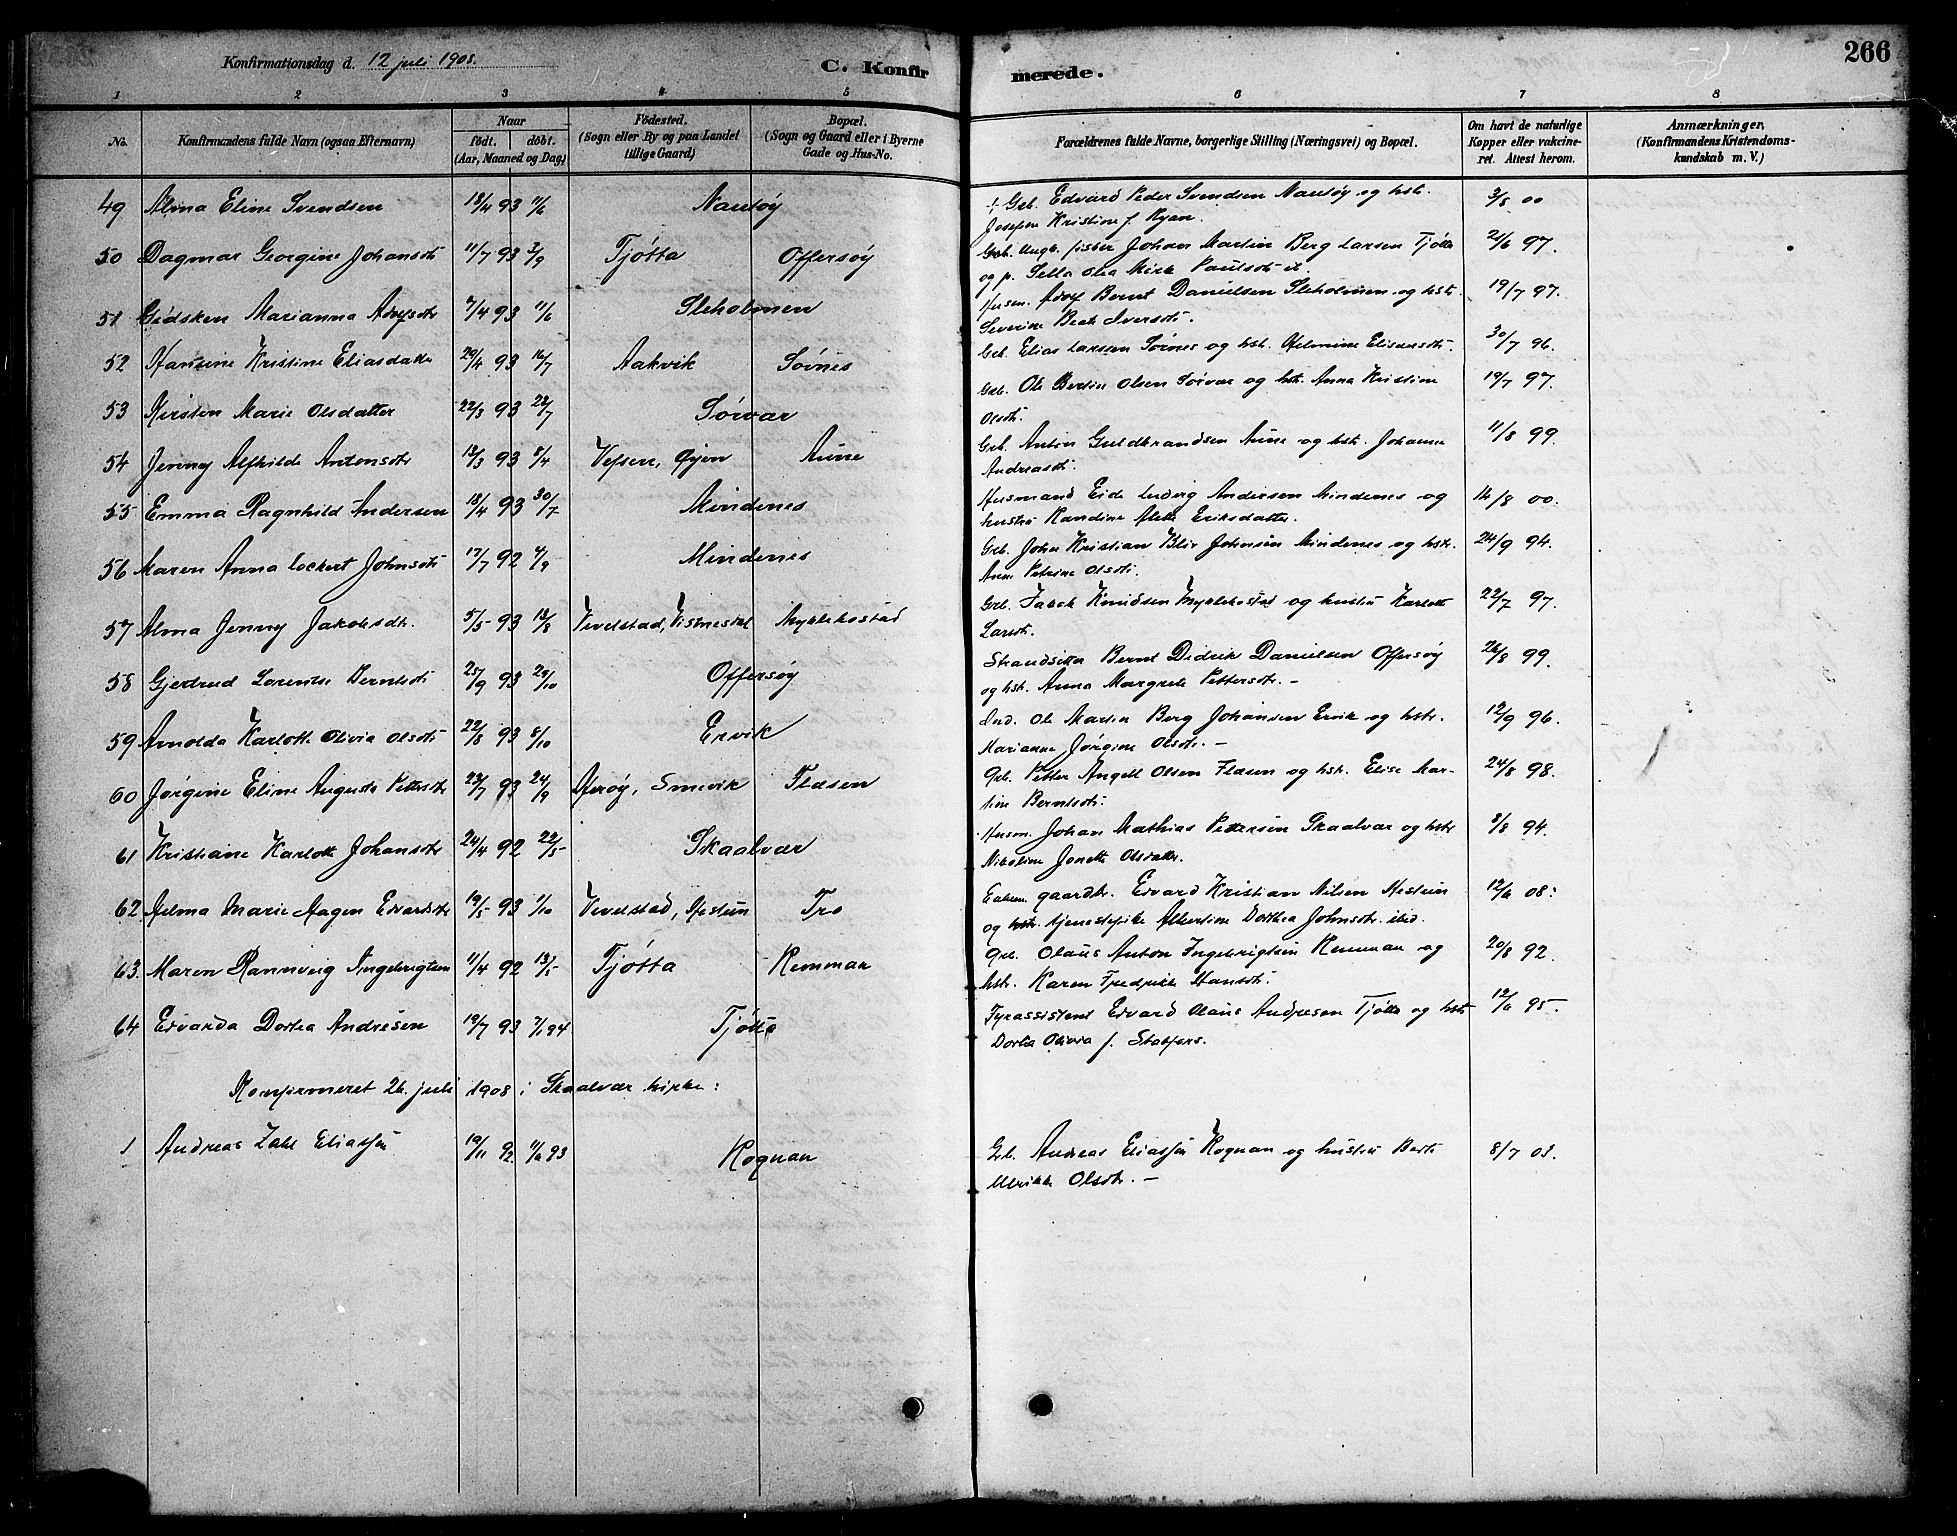 266
Konfirmationsdag d. 12 juli 1908.
C. Konfirmerede.
1 2 3 4 5 6 7 8
No. Konfirmandens fulde Navn (ogsaa Efternavn) Naar født. døbt. (Aar, Maaned og Dag) Fødested. (Sogn eller By og paa Landet tillige Gaard) Bopæl. (Sogn og Gaard eller i Byerne Gade og Hus-No. Forældrenes fulde Navne, borgerlige Stilling (Næringsvei) og Bopæl. Om havt de naturlige Kopper eller vakcineret. Attest herom. Anmærkninger. (Konfirmandens Kristendomskundskab m. V.)
49 Alma Eline Svendsen 18/4 93 11/6 Nausöy Grb. Edvard Peder Svendsen Nausöy og hstr. 3/8 00
Josefine Kristine f. Ryan.
50 Dagmar Georgine Johansdt 11/7 93 3/9 Tjötta Offersöy Grb. Ungk. fisker Johan Martin Berg Larsen Tjötta 21/6 97.
og p. Sella Olea Paulsdt
51 Gidsken Marianna 7/4 93 11/6 Sleholmen Husm. Bernt Danielsen Sleholmen og hstr. 19/7 97.
Severine Beck Iversdt.
52 Hansine Kristine Eliasdatter 29/4 93 16/7 Aakvik Sörnes Grb. Elias Larsen Sörnes og hstr. 30/7 96.
53 Kirsten Marie Olsdatter 22/3 93 23/7 Sörvar Grb. Ole Bertin Olsen Sörvar og hstr. Anna Kristine 19/7 97.
Olsdt.
54 Jenny Alfhilde Antonsdt 13/3 93 8/4 Vefsen, Öyen Aune Grb. Anton Guldbrandsen Aune og hstr. Johanna 11/8 99.
Andreasdt.
55 Emma Ragnhild Andersen 18/4 93 30/7 Mindenes Husmand Ludvig Andersen Mindenes og 14/8 00.
hustru Kandine Eriksdatter.
56 Maren Anna Lockert Johnsdt 17/7 92 4/9 Mindenes Grb. John Kristian Johnsen Mindenes og hstr. 24/9 94.
Anne Petrine Olsdt.
57 Alma Jenny Jakobsdt. 5/5 93 13/8 Vevelstad, Visthesdal Myklebostad Grb. Jakob Knudsen Myklebostad og hustru Karlotte 22/7 97.
Larsdt.
58 Gjertrud Lorentse Berntsdt 25/9 93 29/10 Offersöy Strandsitter Bernt Didrik Danielsen Offersöy 26/8 99.
og hstr. Anna Margrete Pettersdt. -
59 Arnolda Karlotte Olivia Olsdt 22/8 93 8/10 Ervik Ind. Ole Martin Berg Johansen Ervik og hstr. 12/9 96.
Marianne Jörgine Olsdt. -
60 Jörgine Eline Augusta Pettersdt 23/7 93 24/9 Alsröy, Smevik Flæsen Grb. Petter Angell Olsen Flæsen og hstr. Elise Mar- 24/8 98.
tine Berntsdt.
61 Kristiane Karlotte Johansdt 24/4 92 22/5 Skaalvær Husm. Johan Mathias Pettersen Skaalvær og hstr 8/8 94.
Nikoline Jonette Olsdatter.
62 Helma Marie Aagen Edvardsdt 19/5 93 1/10 Vevelstad, Hestun Tro gaardbr. Edvard Kristian Nilsen Hestun 12/6 08.
og tjenestepike Albertine Dorthea Johnsdt. ibid.
63. Maren Rannveig Ingebrigtsen 11/4 92 13/5 Tjötta Remman Grb. Olaus Anton Ingebrigtsen Remman og 20/8 92.
hstr. Karen Fredrikke Hansdt.
64 Edvarda Dortea Andresen 19/7 93 7/1 94 Tjötta Fyrassistent Edvard Olaus Andresen Tjötta og hstr 12/6 95.
Dortea Olivia f. Stabfors.
Konfirmeret 26. juli 1908 i Skaalvær kirke:
1 Andreas Zahl Eliassen 19/11 92 11/6 93 Rognan Grb. Andreas Eliassen Rognan og hustru Berte 8/7 03.
Ulrikke Olsdt. -